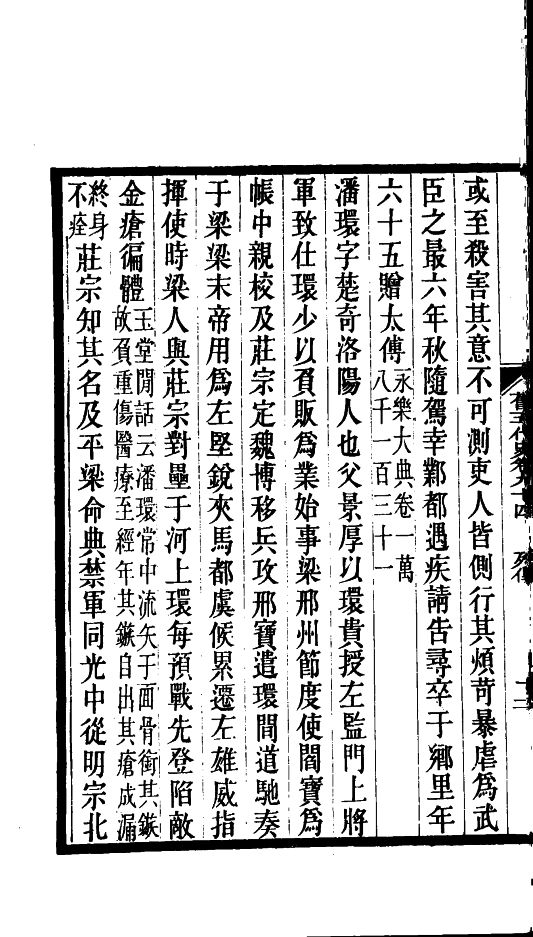 或至殺害其意不可測吏人皆側行其煩苛暴虐爲武
臣之最六年秋隨駕幸鄴都遇疾請告尋卒于鄉里年
六十五贈太傅永樂大典卷一萬
八千一百三十一
潘環字楚奇洛陽人也父景厚以環貴授左監門上將
軍致仕環少以負販爲業始事梁邢州節度使閻寶爲
帳中親校及莊宗定魏博移兵攻邢寶遣環間道馳奏
于梁梁末帝用爲左堅銳夾馬都虞候累遷左雄威指
揮使時梁人與莊宗對壘于河上環每預戰先登陷敵
金瘡徧體玉堂閒話云潘環常中流矢于面骨銜其鏃
故負重傷醫療至經年其鏃自出其瘡成漏
終身
不痊莊宗知其名及平梁命典禁軍同光中從明宗北